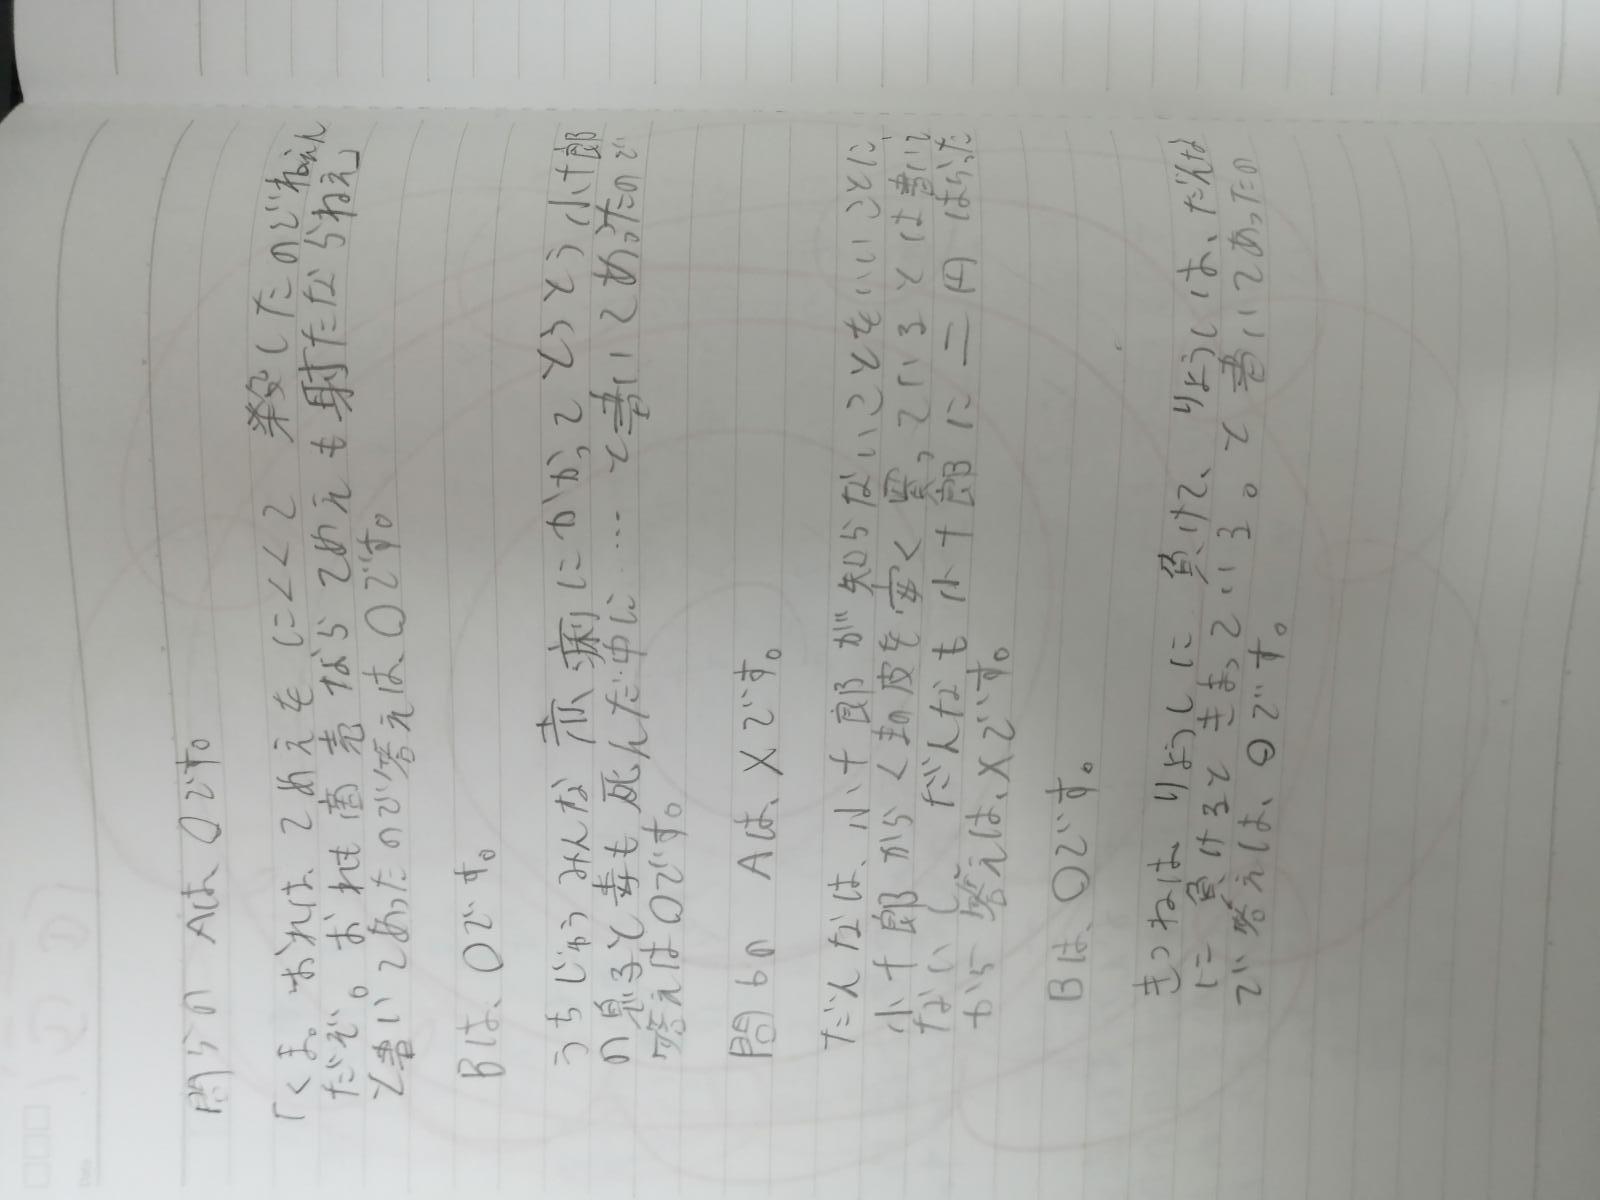 問5の Aは、○です。
「くま。おれは、てめえをにくくて 殺したのでねえん
だぞ。おれも商売ならてめえも射たならねえ」
と書いてあったので答えは○です。
Bは、○です。
うちじゅうみんな赤痢にかかってとうとう小十郎
の息子と妻も死んだ中に…と書いてあったので
答えは○です。
問6の Aは、×です。
だんなは、小十郎が知らないことをいいことに
小十郎からくまの皮を安く買っているとは書いて
ないし だんなも小十郎に二円はらった
から答えは、×です。
Bは、○です。
きつねは りょうしに 負けて、りょうしは、だんな
に 負けるときまっている。と 書いてあったの
で答えは、○です。